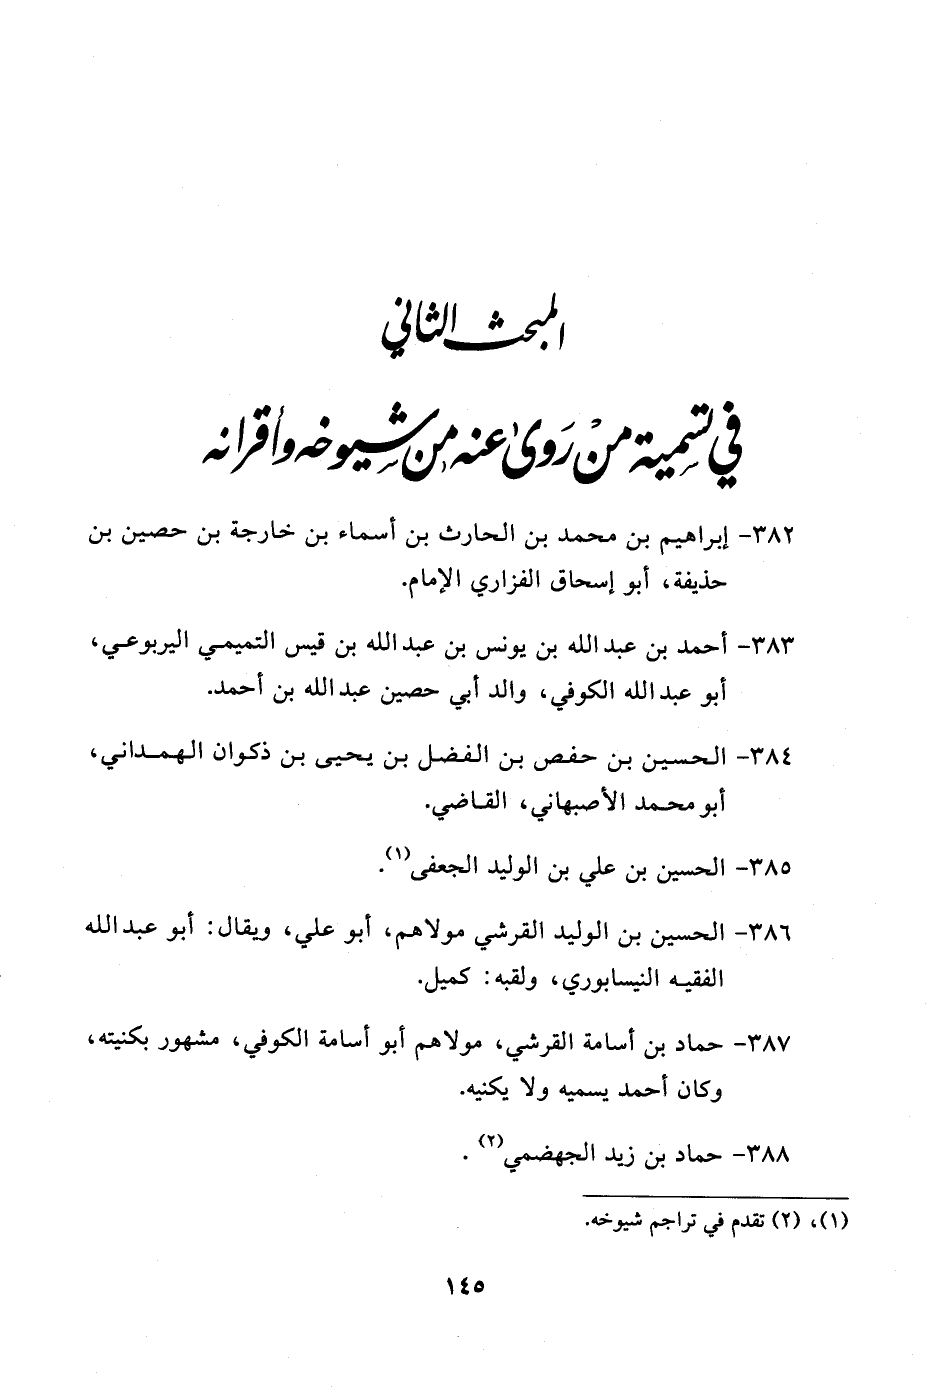 المبحث الثاني
في تسمية منْ رَوى عنه من شيوخه وأقرانه
٣٨٢- إبراهيم بن محمد بن الحارث بن أسماء بن خارجة بن حصين بن
حذيفة، أبو إسحاق الفزاري الإمام.
٣٨٣- أحمد بن عبدالله بن يونس بن عبدالله بن قيس التميمي اليربوعي،
أبو عبدالله الكوفي، والد أبي حصين عبدالله بن أحمد.
٣٨٤- الحسين بن حفص بن الفضل بن يحيى بن ذكوان الهمداني،
أبو محمد الأصبهاني، القاضي.
٣٨٥- الحسين بن علي بن الوليد الجعفى(١).
٣٨٦- الحسين بن الوليد القرشي مولاهم، أبو علي، ويقال: أبو عبدالله
الفقيه النيسابوري، ولقبه: كميل.
٣٨٧- حماد بن أسامة القرشي، مولاهم أبو أسامة الكوفي، مشهور بكنيته،
وكان أحمد يسميه ولا يكنيه.
٣٨٨- حماد بن زيد الجهضمي(٢) .
(١)، (٢) تقدم في تراجم شيوخه.
١٤٥